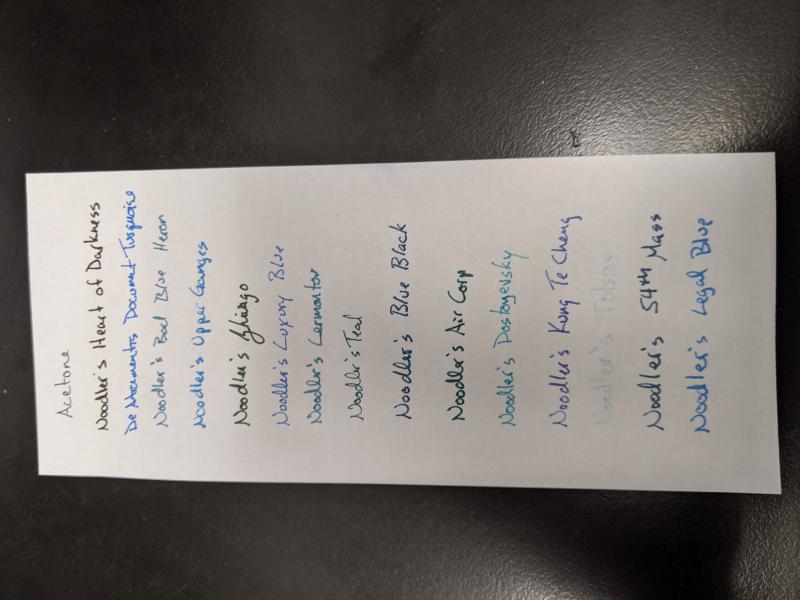 Acetone
Noodler's Heart of Darkness
De Atramentis Document Turquoise
Noodler's Bad Blue Heron
Noodler's Upper Ganges
Noodler's Ghingo
Noodler's Luxury Blue
Noodler's Lermontov
Noodler's Teal
Noodler's Blue Black
Noodler's Air Corp
Noodler's Dostoyevsky
Noodler's Kung Te Cheng
Noodler's Tolstoy
Noodler's 54th Mass
Noodler's Legal Blue